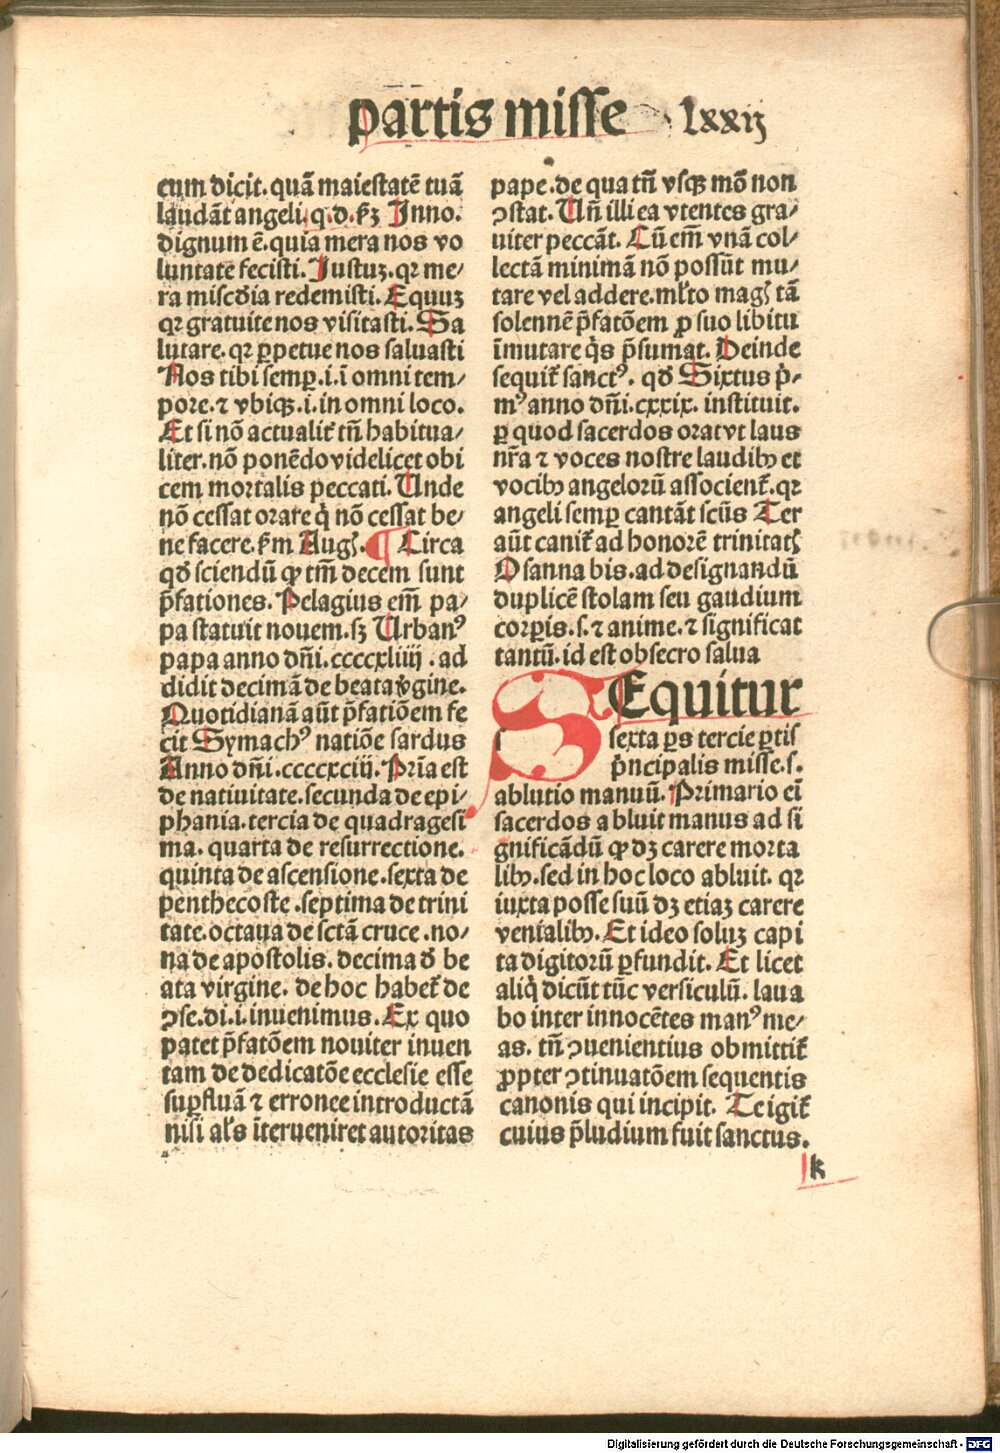 partis misse lxxij
cum dicit. quā maiestatē tuā
laudāt angeli. q. d. ẜꝫ Inno.
dignum ē. quia mera nos vo
luntate fecisti. Iustuꝫ. qꝛ me/
ra misc̄dia redemisti. Equuꝫ
qꝛ gratuite nos visitasti. Sa
lutare. qꝛ ꝑpetue nos saluasti
Nos tibi semꝑ. i. ī omni tem/
pore. ⁊ vbiqꝫ. i. in omni loco.
Et si nō actualit̄ tn̄ habitua/
liter. nō ponēdo videlicet obi
cem mortalis peccati. Unde
nō cessat orare q̇ nō cessat be/
ne facere. ẜm Augꝰ. ¶ Circa
qđ sciendū ꝙ tm̄ decem sunt
p̄fationes. Pelagius em̄ pa/
pa statuit nouem. sꝫ Urbanꝰ
papa anno dn̄i. ccccxliiij. ad
didit decimā de beata v̓gine.
Quotidianā aūt p̄fatiōem fe
cit Symachꝰ natiōe sardus
Anno dn̄i. ccccxciij. Pr̄ia est
de natiuitate. secunda de epi/
phania. tercia de quadragesi
ma. quarta de resurrectione.
quinta de ascensione. sexta de
penthecoste. septima de trini
tate. octaua de sctā cruce. no/
na de apostolis. decima đ be
ata virgine. de hoc habet̄ de
ꝯse. di. i. inuenimus. Ex quo
patet p̄fatōem nouiter inuen
tam de dedicatōe ecclesie esse
suꝑfluā ⁊ erronee introductā
nisi al̓s īterueniret autoritas
pape. de qua tn̄ vsqꝫ mō non
ꝯstat. Un̄ illi ea vtentes gra/
uiter peccāt. Cū em̄ vnā col/
lectā minimā nō possūt mu/
tare vel addere. ml̓to magꝭ tā
solennē p̄fatōem ꝓ suo libitu
īmutare q̇s p̄sumat. Deinde
sequit̄ sanctꝰ. qđ Sixtus p̓/
mꝰ anno dn̄i. cxxix. instituit.
ꝑ quod sacerdos orat vt laus
nr̄a ⁊ voces nostre laudibꝫ et
vocibꝫ angelorū associent̄. qꝛ
angeli semꝑ cantāt scūs Ter
aūt canit̄ ad honorē trinitatꝭ
Osanna bis. ad designandū
duplicē stolam seu gaudium
corꝑis. s. ⁊ anime. ⁊ significat
tantū. id est obsecro salua
SEquitur
sexta ꝑs tercie ꝑtis
p̓ncipalis misse. s.
ablutio manuū. Primario eī
sacerdos abluit manus ad si
gnificādū ꝙ dꝫ carere morta
libꝫ. sed in hoc loco abluit. qꝛ
iuxta posse suū dꝫ etiaꝫ carere
venialibꝫ. Et ideo soluꝫ capi
ta digitorū ꝑfundit. Et licet
aliq̇ dicūt tūc versiculū. laua
bo inter innocētes manꝰ me/
as. tn̄ ꝯuenientius obmittit̄
ꝓpter ꝯtinuatōem sequentis
canonis qui incipit. Te igit̄
cuius p̄ludium fuit sanctus.
k
Digitalisierung gefördert durch die Deutsche Forschungsgemeinschaft - DFG